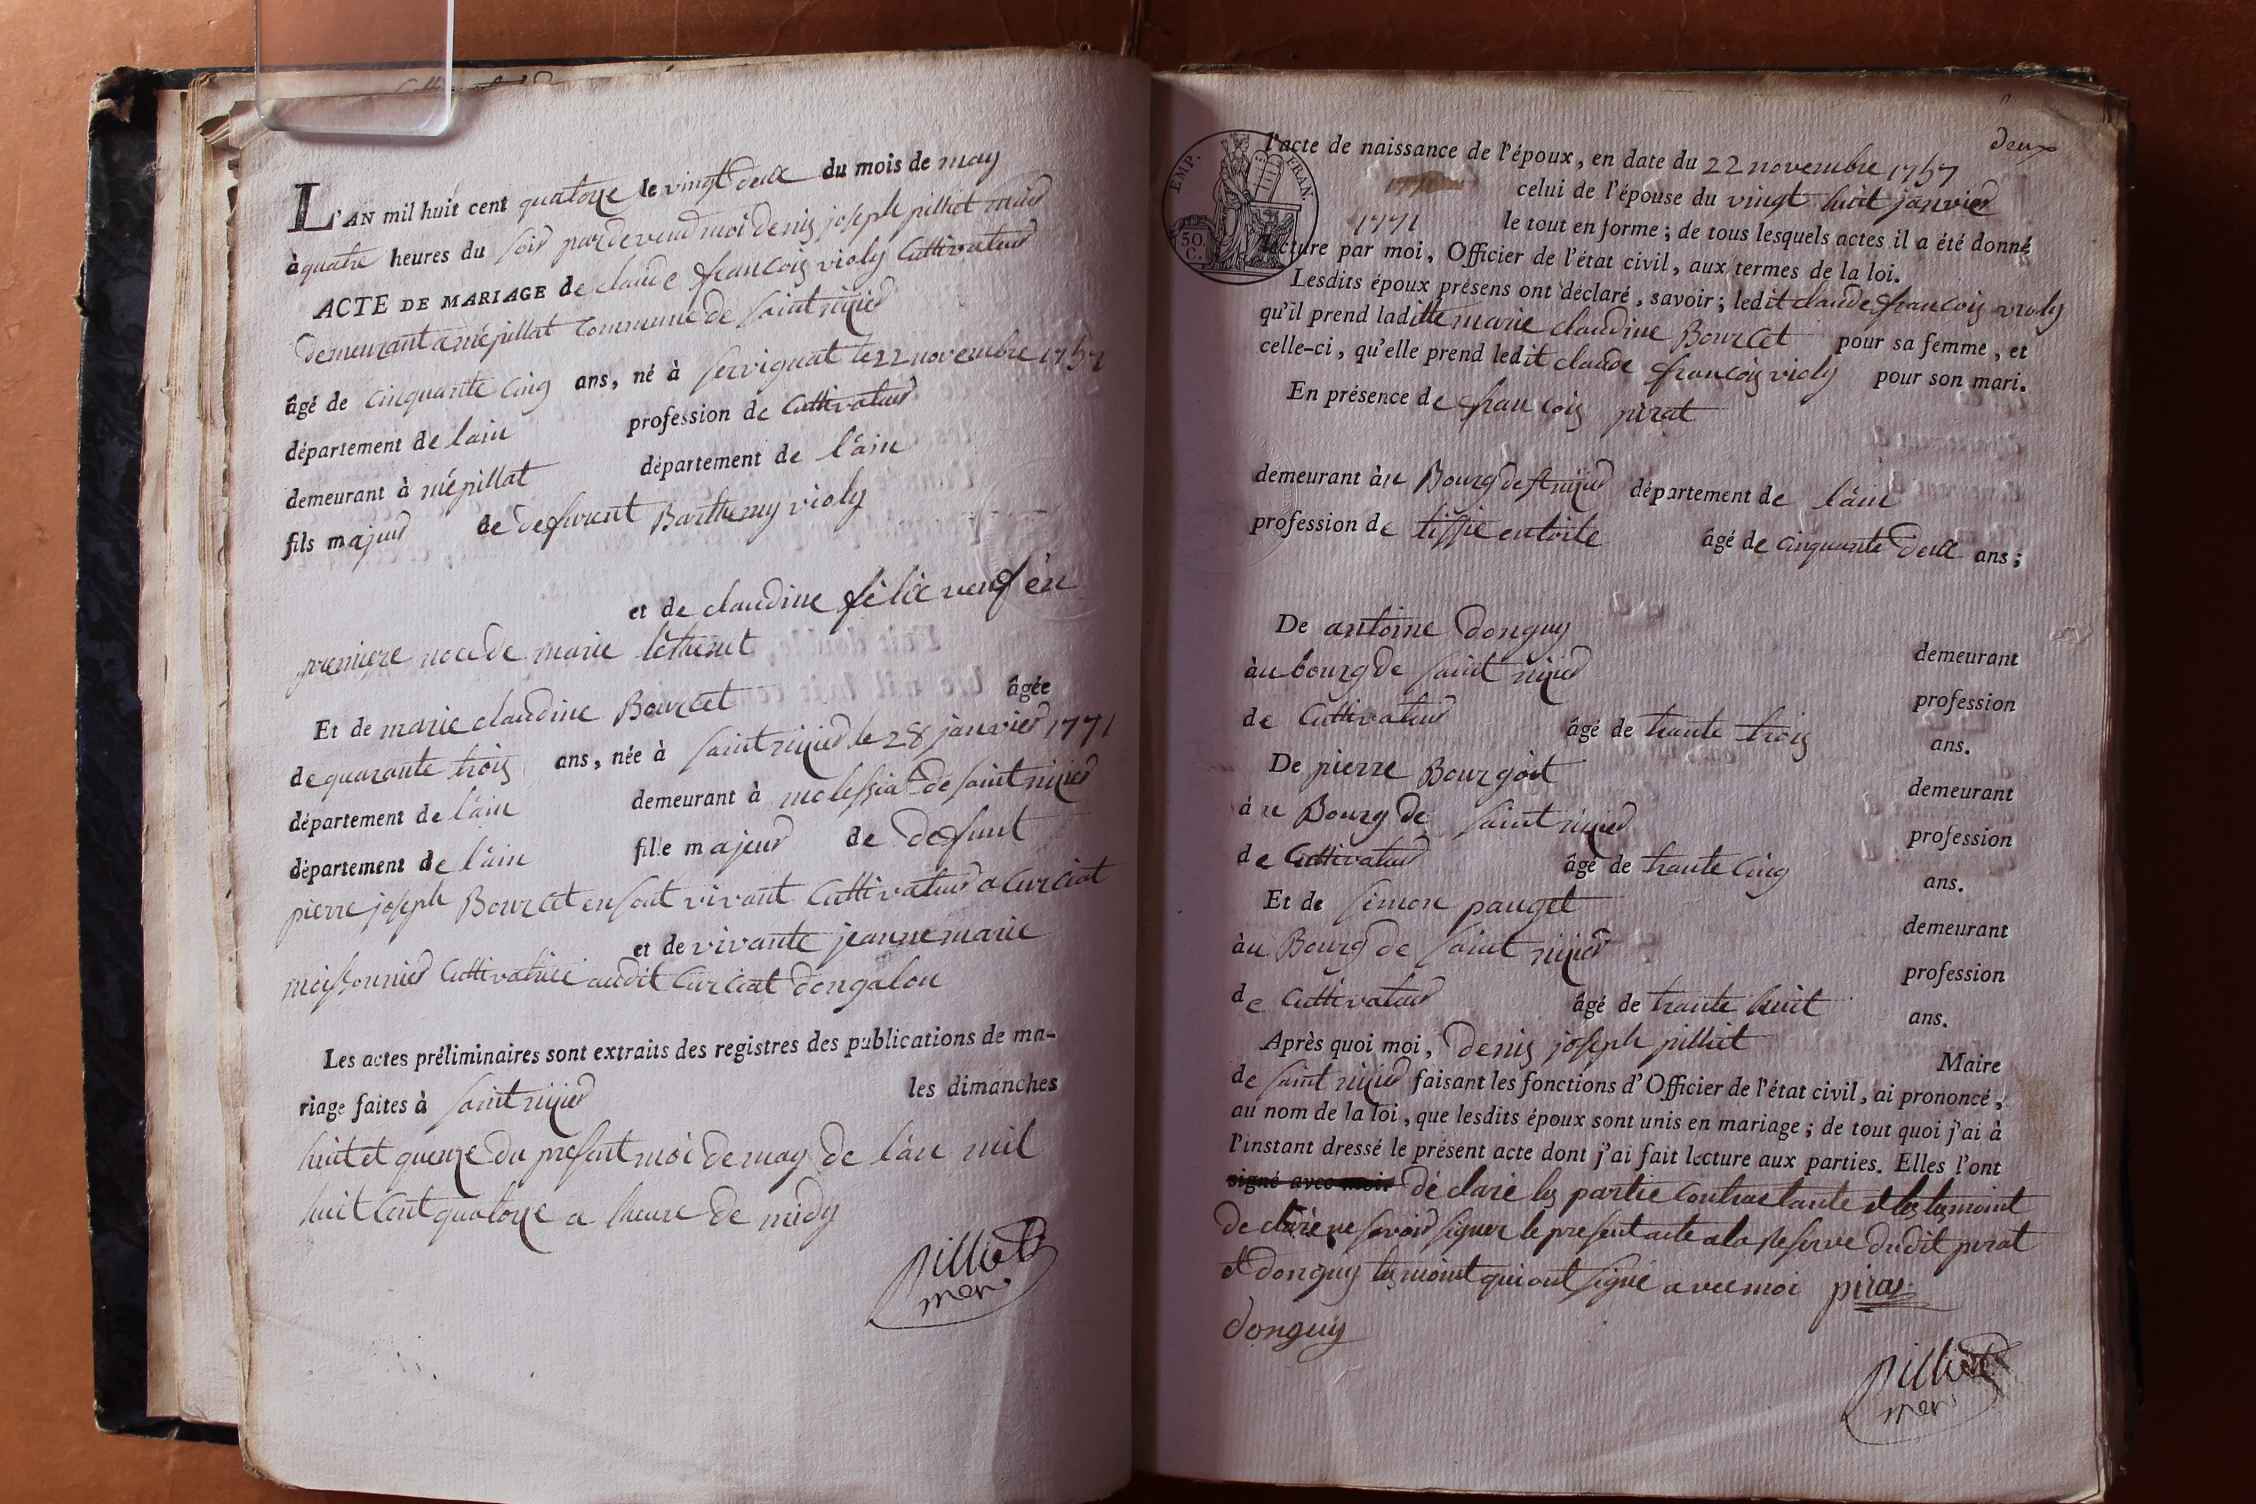 L'AN mil huit cent quatorze le vingt deux du mois de may
à quatre heures du soir pardevend moi denis joseph pilliet maire
ACTE DE MARIAGE de claude francois violy Cultivateur
demeurant a mépillat commune de saint nizier
âgé de cinquante cinq ans, né à servignat le 22 novembre 1757
département de lain profession de Cultivateur
demeurant à mépillat département de l'ain
fils majeur de defunt Barthemy violy
et de claudine félix veuf en
premiere noce de marie
Et de marie claudine Bourcet âgée
de quarante trois ans, née à saint nizier le 28 janvier 1771
département de l'ain demeurant à molessiat de saint nizier
département de l'ain fille majeur de defunt
pierre joseph Bourcet en sont vivant Cultivateur a Curciat
et de vivante jeanne marie
moissonnier Cultivatrice audit Curciat dongalon
Les actes préliminaires sont extraits des registres des publications de ma-
riage faites à saint nizier les dimanches
huit et quenze du present moi de may de l'an mil
huit Cent quatorze a lheure de midy
pilliet
mer
deux
EMP. FRAN.
50. C.
l'acte de naissance de l'époux, en date du 22 novembre 1757
celui de l'épouse du vingt huit janvier
1771 le tout en forme; de tous lesquels actes il a été donné
lecture par moi, Officier de l'état civil, aux termes de la loi.
Lesdits époux présens ont déclaré, savoir; ledit claude francois violy
qu'il prend laditte marie claudine Bourcet pour sa femme, et
celle-ci, qu'elle prend ledit claude francois violy pour son mari.
En présence de francois pirat
demeurant àu Bourg de st nizier département de l'ain
profession de tissie en toile âgé de cinquante deux ans;
De antoine donguy demeurant
àu bourg de saint nizier profession
de Cultivateur âgé de trante trois ans.
De pierre Bourgoit demeurant
àu Bourg de saint nizier profession
de Cultivateur âgé de trante cinq ans.
Et de simon pauget demeurant
àu Bourg de saint nizier profession
de Cultivateur âgé de trante huit ans.
Après quoi moi, denis joseph pilliet Maire
de saint nizier faisant les fonctions d'Officier de l'état civil, ai prononcé,
au nom de la loi, que lesdits époux sont unis en mariage; de tout quoi j'ai à
l'instant dressé le présent acte dont j'ai fait lecture aux parties. Elles l'ont
signé avec moi déclaré les partie contractante et les temoint
de claré ne savoir signer le present acte a la reserve dudit pirat
et donguy temoint qui ont signé avec moi pirat
donguy
pilliet
mer